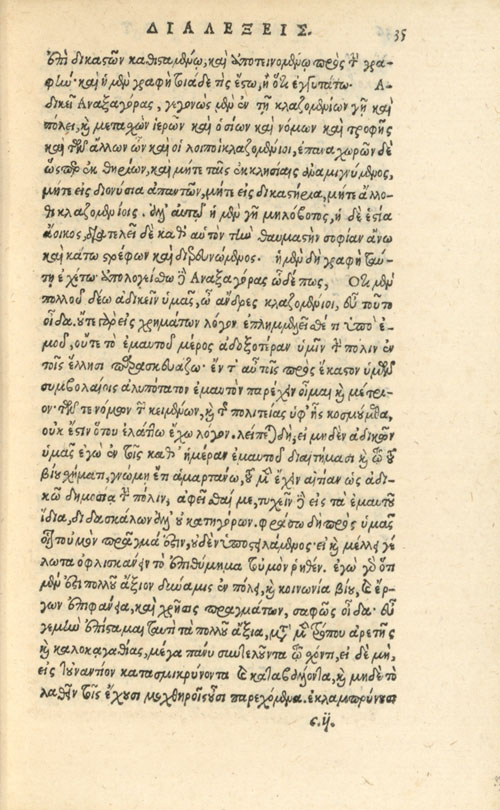 ΔΙΑΛΕΞΕΙΣ. 35
ἐπὶ δικαστῶν καθισταμένων, καὶ ἀποτεινομένων πρὸς τὴν γρα-
φήν· καὶ ἡ μὲν γραφὴ
Α-
δικεῖ Αναξαγόρας, γεγονὼς μὲν ἐν τῇ κλαζομενίων γῇ καὶ
πόλει, κὶ μετασχὼν ἱερῶν καὶ ὁσίων καὶ νόμων καὶ τροφῆς
καὶ τῶν ἄλλων ὧν καὶ οἱ λοιποὶ κλαζομένιοι,
ὥσπερ ἐκ θηρίων, καὶ μήτε ταῖς ἐκκλησίαις ἀναμιγνύμενος,
μήτε εἰς διονύσια ἀπαντῶν, μήτε εἰς δικαστήρια, μήτε ἄλλο-
θι κλαζομενίοις. ἀλλ' αὐτῷ ἡ μὲν γῆ μηλόβοτος, ἡ δὲ ἑστία
ἄοικος, διατελεῖ δὲ καθ' αὑτὸν τὴν θαυμαστὴν σοφίαν ἄνω
καὶ κάτω στρέφων καὶ διερευνώμενος. ἡ μὲν δὴ γραφὴ ταύ-
τῃ ἐχέτω· ἀπολογείσθω δὲ Αναξαγόρας ὧδέ πως, Οτι μὲν
πολλοῦ δέω ἀδικεῖν ὑμᾶς, ὦ ἄνδρες κλαζομένιοι, εὖ τοῦτο
οἶδα. οὔτε γὰρ εἰς χρημάτων λόγον ἐπλημμελήθη τι ὑπὸ ἐ-
μοῦ, οὔτε τὸ ἐμαυτοῦ μέρος ἀδοξοτέραν ὑμῖν τὴν πόλιν ἐν
τοῖς ἕλλησι παρασκευάζω· ἔν τ' αὖ τοῖς πρὸς ἕκαστον ὑμῶν
συμβολαίοις ἀλυπότατον ἐμαυτὸν παρέχειν οἶμαι κὶ μέτρι-
ον· τῶν τε νόμων τῶν κειμένων, κὶ τῆς πολιτείας ὑφ' ἧς κοσμούμεθα,
οὐκ ἔστιν ὅτου ἐλάττω ἔχω λόγον. λείπεται δὴ, εἰ μηδὲν ἀδικῶν
ὑμᾶς ἐγὼ ἐν τοῖς καθ' ἡμέραν ἐμαυτοῦ διαιτήμασι κὶ τῷ τοῦ
βίου σχήματι, γνώμῃ ἔπι ἁμαρτάνω, τοῦ μὲν ἔχειν αἰτίαν ὡς ἀδι-
κῶ δημοσίᾳ τὴν πόλιν, ἀφεῖσθαί με, τυχεῖν δὲ εἰς τὰ ἐμαυτοῦ
ἴδια, διδασκάλων ἀλλ' οὐ κατηγόρων. φράσω δὴ πρὸς ὑμᾶς
οἷον τοὐμὸν πρᾶγμά ἐστιν, οὐδὲν ὑποστειλάμενος· εἰ κὶ μέλλει γέ
λωτα ὀφλισκάνειν τὸ ἐπιθύμημα τοὐμὸν ῥηθέν. ἐγὼ γὰρ ὅτι
μὲν ἐστι πολλοῦ ἄξιον δύναμις ἐν πόλει, κὶ κοινωνία βίου, καὶ ἔρ-
γων ἐπιφάνεια, καὶ χρῆσις πραγμάτων, σαφῶς οἶδα·
ἐπίσταμαι ταυτὶ τὰ πολλοῦ ἄξια, ἀρετῆς
κὶ καλοκαγαθίας, μέγα πάνυ συντελοῦντα τῷ ἔχοντι, εἰ δὲ μὴ,
εἰς τοὐναντίον κατασμικρύνοντα καὶ καταβάλλοντα, κὶ μηδὲ τὸ
λαθεῖν τοῖς ἔχουσι μοχθηροῖς οὖσι παρεχόμενα. ἐκλαμπρύνουσι
ϛ.ij.